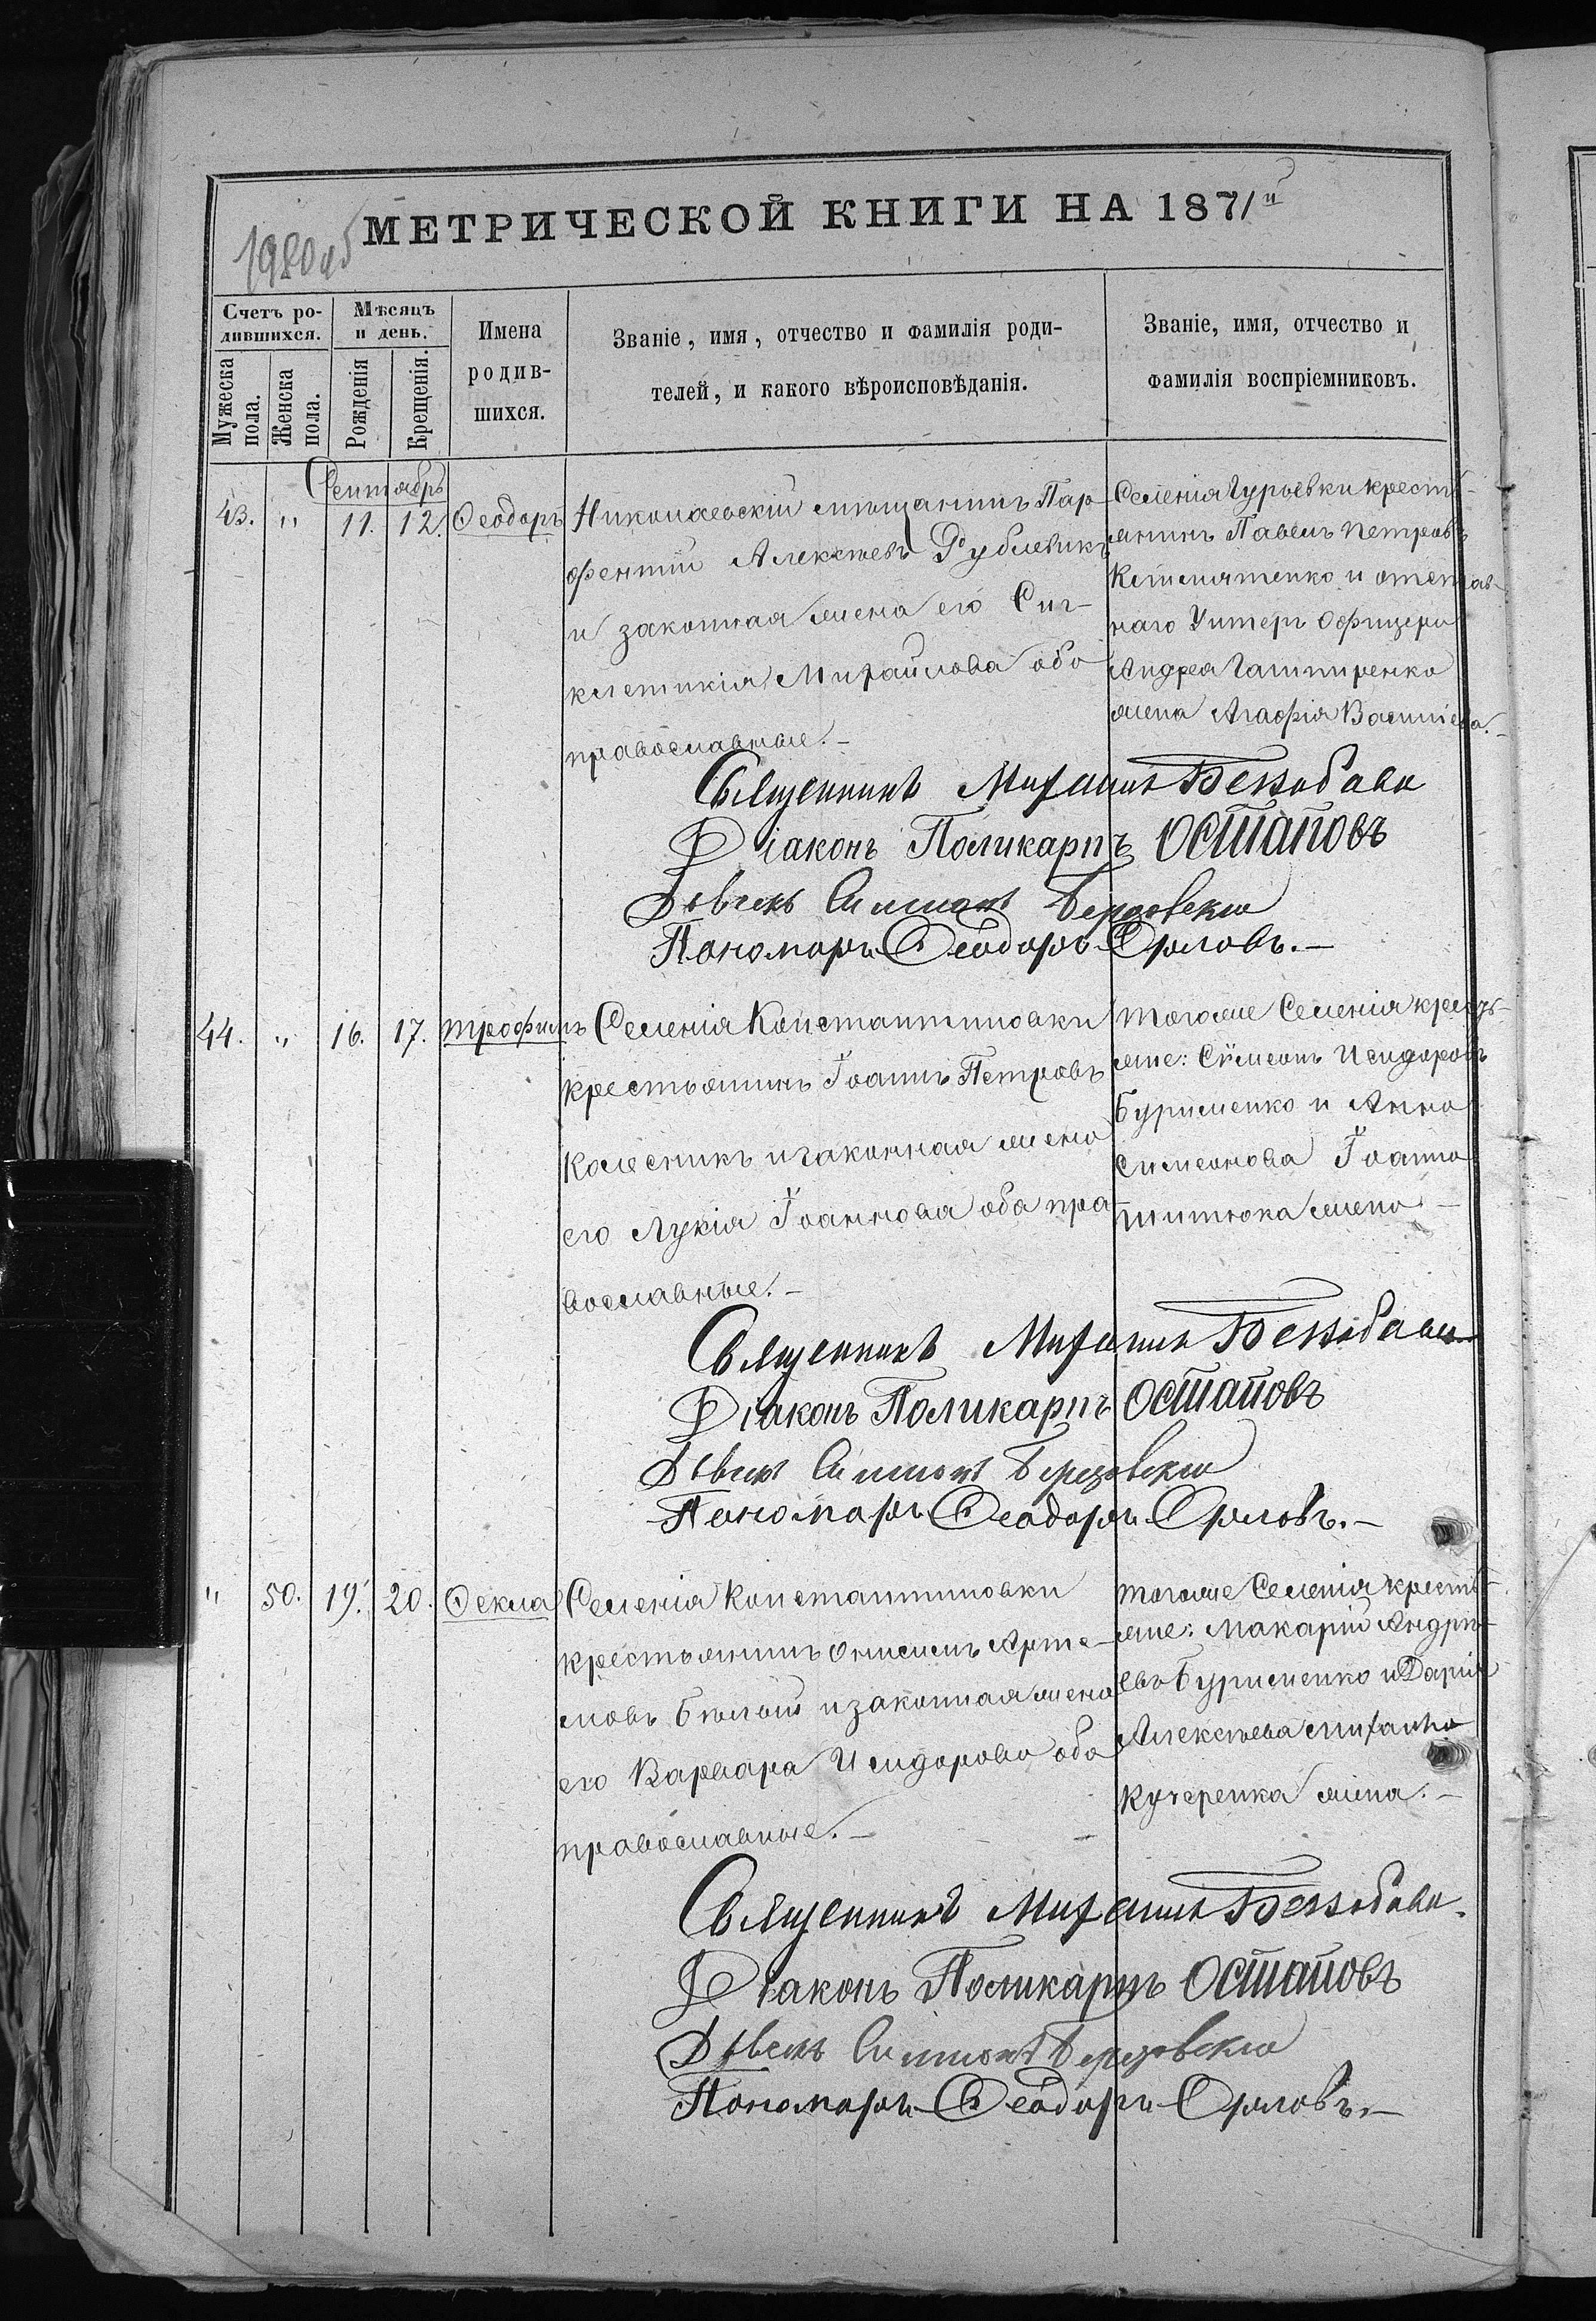 МЕТРИЧЕСКОЙ КНИГИ НА 1871й
1920 об
Счетъ ро-
дившихся.
Мужеска
пола.
Женска
пола.
Мѣсяцъ
и день.
Рожденія
Крещенія.
Имена
родив-
шихся.
Званіе, имя, отчество и фамилія роди-
телей, и какого вѣроисповѣданія.
Званіе, имя, отчество и
фамилія воспріемниковъ.
Сентябрь
43. " 11. 12. Ѳеодоръ
Николаевскій мѣщанинъ Пар-
фентій Алексѣевъ
и законная жена его Син-
клетикія Михайлова оба
православные.-
Селенія Гурьевки кресть-
янинъ Павелъ Петровъ
и отстав-
наго Унтеръ Офицера
Андрея
жена Агафія Василіева.-
Священникъ Михаилъ
Діаконъ Поликарпъ Остаповъ
Дьячекъ Симеонъ Березовскій
Пономарь Ѳеодоръ Орловъ.-
44. " 16. 17. Трофимъ
Селенія Константиновки
крестьянинъ Іоаннъ Петровъ
Колесникъ и законная жена
его Лукія Іоаннова оба пра-
вославные.-
Тогоже Селенія кресть-
яне: Сѵмеонъ Исидоровъ
Бурименко и Анна
Симеонова Іоанна
Шитюка жена -
Священникъ Михаилъ
Діаконъ Поликарпъ Остаповъ
Дьячекъ Симеонъ Березовскій
Пономарь Ѳеодоръ Орловъ.-
" 50. 19. 20. Ѳекла
Селенія Константиновки
крестьянинъ Онисимъ Арте-
мовъ Бѣлый и законная жена
его Варвара Исидорова оба
православные.-
Тогоже Селенія кресть-
яне: Макарій Андре-
евъ Бурименко и Дарія
Алексѣева Михаила
Кучеренка жена.-
Священникъ Михаилъ
Діаконъ Поликарпъ Остаповъ
Дьячекъ Симеонъ Березовскій
Пономарь Ѳеодоръ Орловъ.-